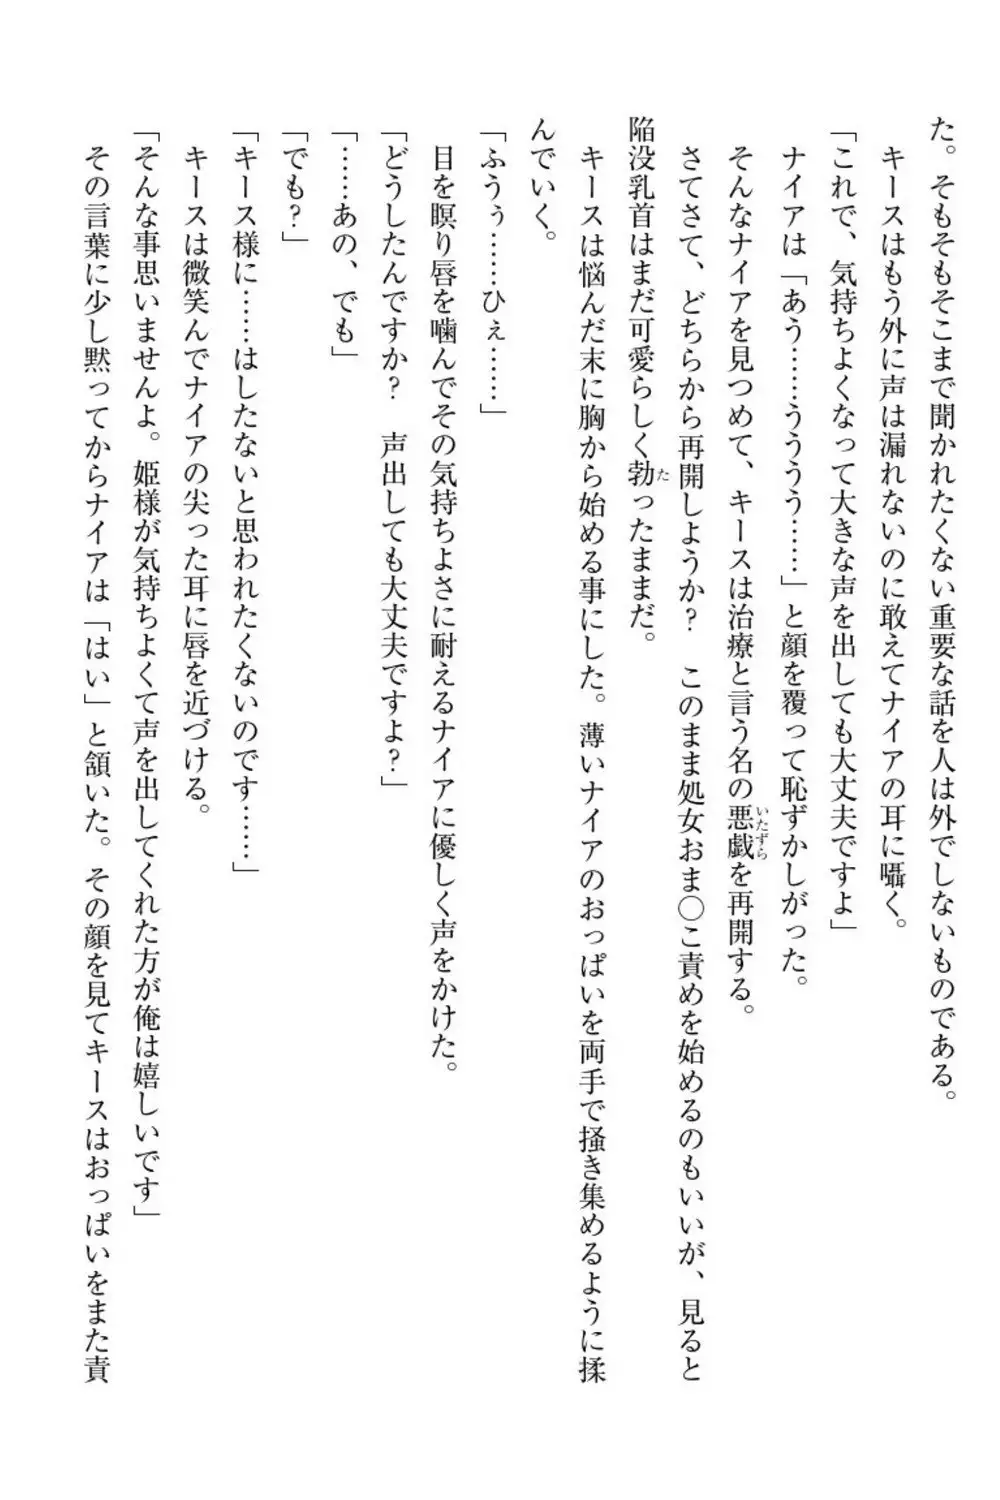 た。そもそもそこまで聞かれたくない重要な話を人は外でしないものである。
キースはもう外に声は漏れないのに敢えてナイアの耳に囁く。
「これで、気持ちよくなって大きな声を出しても大丈夫ですよ」
ナイアは「あう……うううう……」と顔を覆って恥ずかしがった。
いたずら
そんなナイアを見つめて、キースは治療と言う名の悪戯を再開する。
さてさて、どちらから再開しようか？　このまま処女おま〇こ責めを始めるのもいいが、見ると
た
陥没乳首はまだ可愛らしく勃ったままだ。
キースは悩んだ末に胸から始める事にした。薄いナイアのおっぱいを両手で掻き集めるように揉
んでいく。
「ふうぅ……ひぇ……」
目を瞑り唇を噛んでその気持ちよさに耐えるナイアに優しく声をかけた。
「どうしたんですか？　声出しても大丈夫ですよ？」
「……あの、でも」
「でも？」
「キース様に……はしたないと思われたくないのです……」
キースは微笑んでナイアの尖った耳に唇を近づける。
「そんな事思いませんよ。姫様が気持ちよくて声を出してくれた方が俺は嬉しいです」
その言葉に少し黙ってからナイアは「はい」と頷いた。その顔を見てキースはおっぱいをまた責